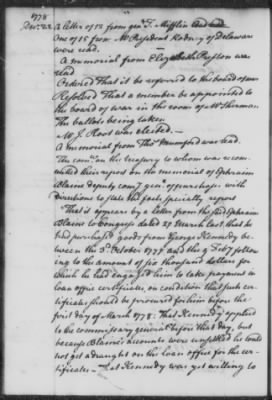 1778
Dec. 22
A letter of 12 from genl T. Mifflin
One of 15 from Mr President Rodney of Delaware
were read.
A memorial from Elizabeth Preston was
read
Ordered That it be referred to the board of war
Resolved That a member be appointed to
the board of war in the room of Mr Sherman
The ballots being taken
Mr J. Root was elected.—
A memorial from Thos Mumford was read.
The comee on the treasury to whom was recom
mitted their report on the memorial of Ephraim
Blaine deputy comy genl of purchases with
directions to state the facts specially report
That it appears by a letter from the said Ephraim
Blaine to Congress dated 27 March last that he
had purchased goods from George Kennedy be
tween the 3d October 1777 and the 9 Feby follow
ing to the amount of six thousand dollars for
which he had engaged him to take payment in
loan office certificates, on condition that such cer
tificates should be procured for him before the
first day of March 1778: That Kennedy applied
to the commissary general before that day, but
because Blaine's accounts were unsettled he could
not get a draught on the loan office for the cer
tificates— That Kennedy was yet willing to